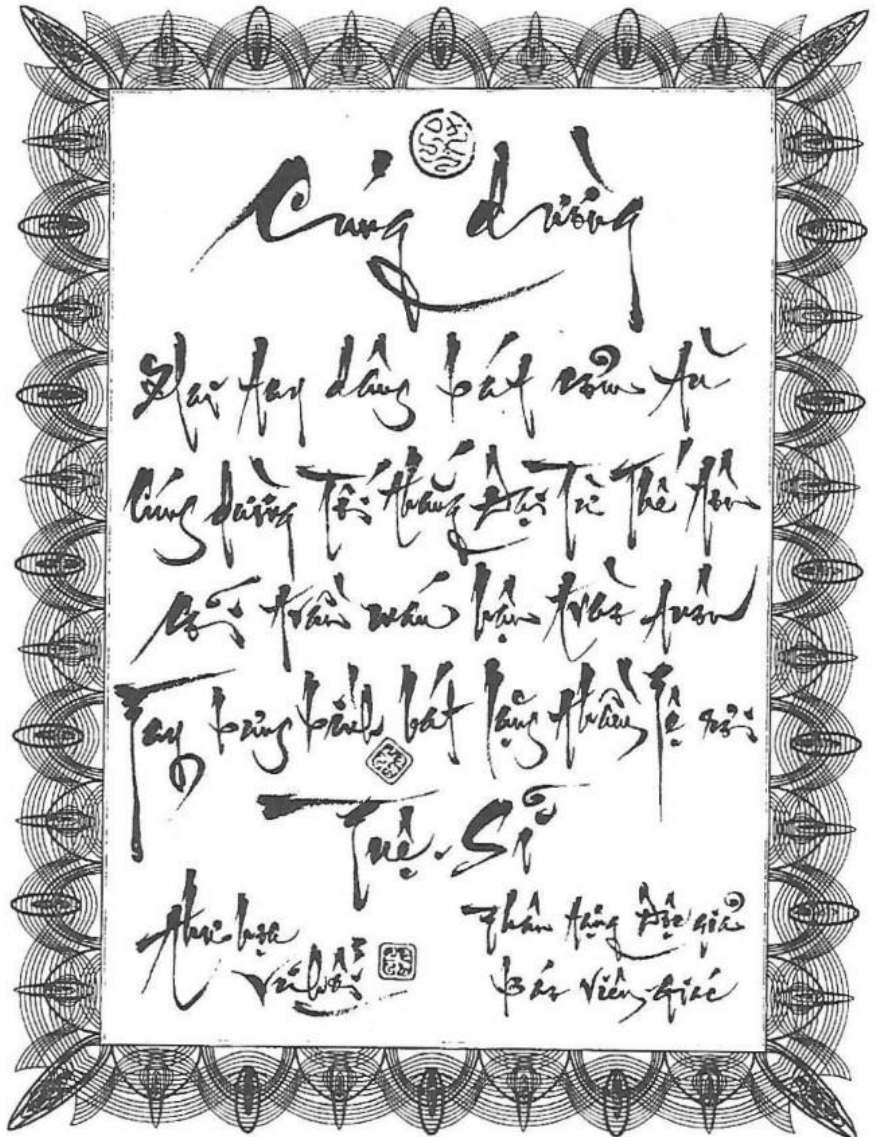 Cúng dường
Hai tay dâng bát cơm tù
Cúng dường Tối thắng Đại Từ Thế tôn
Cõi trần máu hận trào tuôn
Tay bưng bình bát lặng thầm Lệ rơi
Tuệ.Sĩ
Thư họa
Vũ hối
Thân tặng Độc giả
Báo Viên Giác